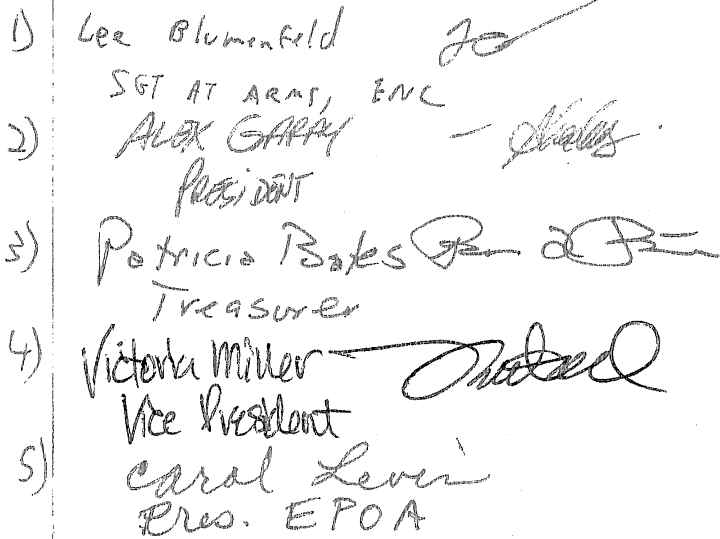 1) Lee Blumenfeld
SGT AT ARMS, ENC
2) ALEX GARAY -
PRESIDENT
3) Patricia Bates
Treasurer
4) Victoria Miller
Vice President
5) Carol Levin
Pres. EPOA